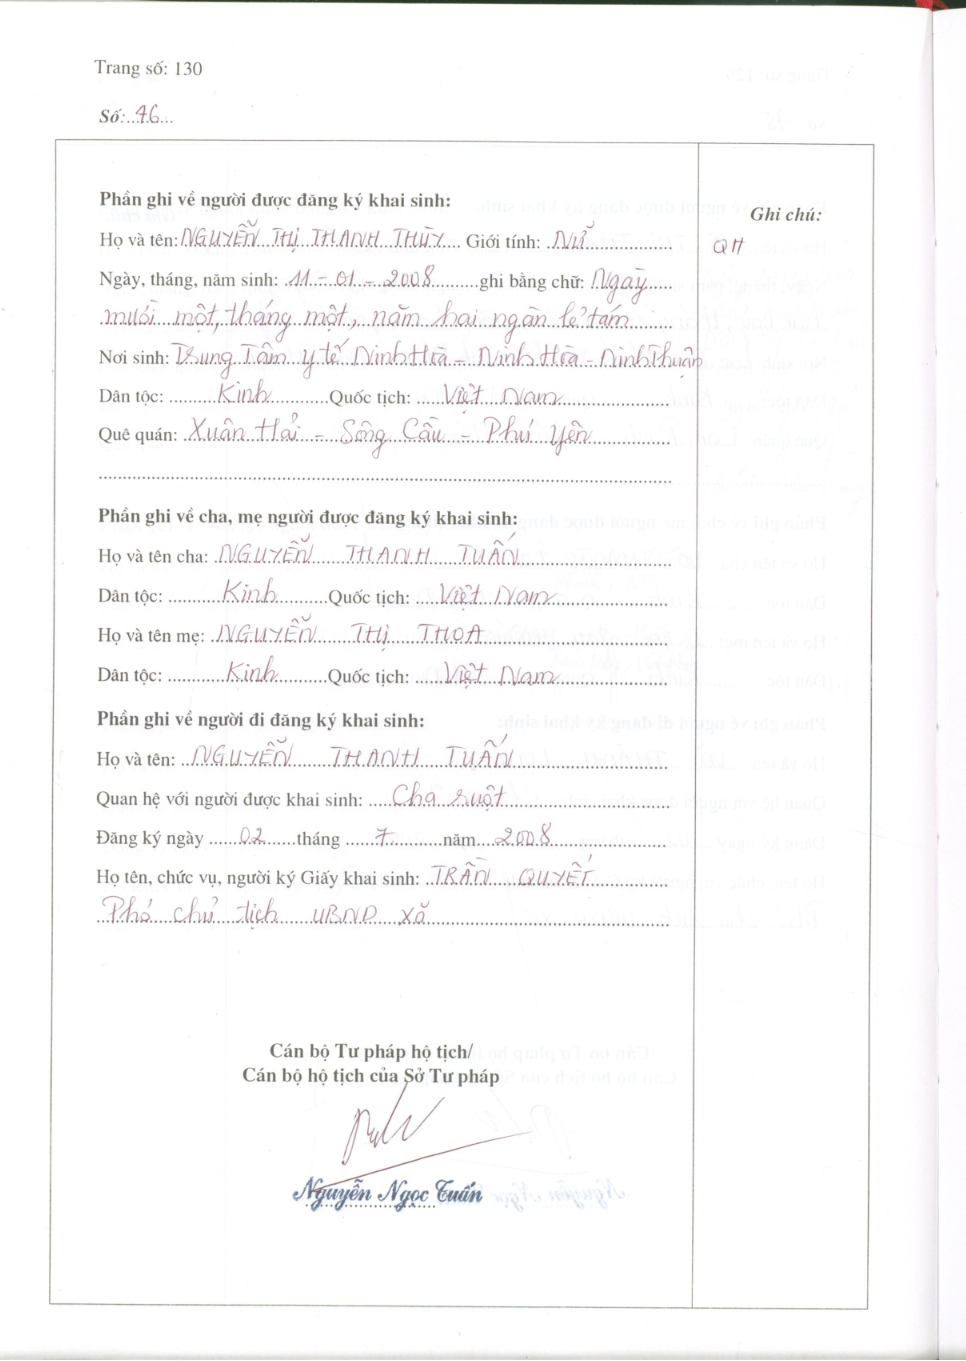 Trang số: 130
Số: 76
Phần ghi về người được đăng ký khai sinh:
Ghi chú:
Họ và tên: NGUYỄN THỊ THANH THÙY Giới tính: Nữ
QH
Ngày, tháng, năm sinh: 11 - 01 - 2008 ghi bằng chữ: Ngày
mười một, tháng một, năm hai ngàn lẻ tám
Nơi sinh: Trung Tâm y tế Ninh Hòa - Ninh Hòa - Ninh Thuận
Dân tộc: Kinh Quốc tịch: Việt Nam
Quê quán: Xuân Hải - Sông Cầu - Phú Yên
Phần ghi về cha, mẹ người được đăng ký khai sinh:
Họ và tên cha: NGUYỄN THANH TUẤN
Dân tộc: Kinh Quốc tịch: Việt Nam
Họ và tên mẹ: NGUYỄN THỊ THOA
Dân tộc: Kinh Quốc tịch: Việt Nam
Phần ghi về người đi đăng ký khai sinh:
Họ và tên: NGUYỄN THANH TUẤN
Quan hệ với người được khai sinh: Cha ruột
Đăng ký ngày 02 tháng 7 năm 2008
Họ tên, chức vụ, người ký Giấy khai sinh: TRẦN QUYẾT
Phó chủ tịch UBND xã
Cán bộ Tư pháp hộ tịch/
Cán bộ hộ tịch của Sở Tư pháp
Nguyễn Ngọc Tuấn